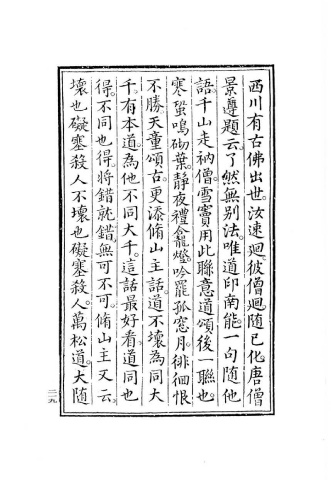 西川有古佛出世。汝速迴。彼僧迴隨已化。唐僧
景遵題云。了然無別法。唯道印南能。一句隨他
語。千山走衲僧。雪竇用此聯意。道頌後一聯也。
寒蛩鳴砌葉。靜夜禮龕燈。吟罷孤窓月。徘徊恨
不勝。天童頌古。更添脩山主話。道不壞為同大
千。有本道為他不同大千。這話最好看。道同也
得。不同也得。將錯就錯。無可不可。脩山主又云。
壞也礙塞殺人。不壞也礙塞殺人。萬松道。大隨
二一九